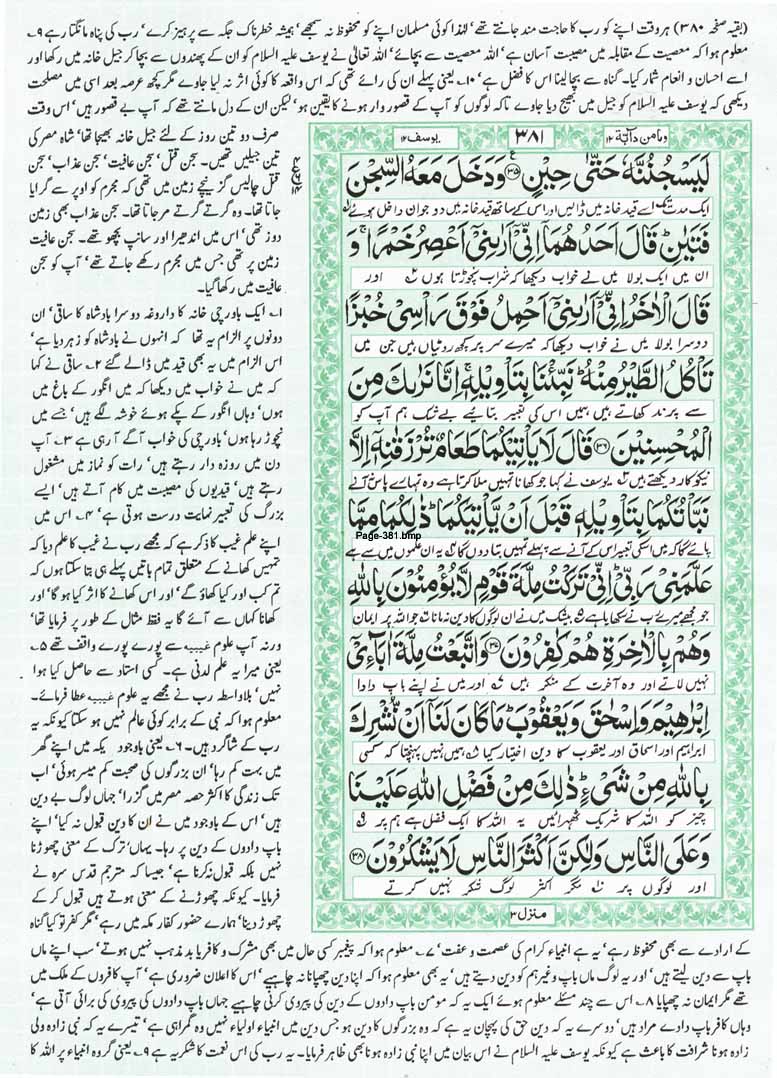 (بقیہ صفحہ ۳۸۰) ہر وقت اپنے کو رب کا حاجت مند جانتے تھے' لہٰذا کوئی مسلمان اپنے کو محفوظ نہ سمجھے' ہمیشہ خطرناک جگہ سے پرہیز کرے' رب کی پناہ مانگتا رہے ۹۔
معلوم ہوا کہ معصیت کے مقابلہ میں مصیبت آسان ہے' اللہ معصیت سے بچائے' اللہ تعالٰی نے یوسف علیہ السلام کو ان کے پھندوں سے بچا کر جیل خانہ میں رکھا اور
اسے احسان و انعام شمار کیا۔ گناہ سے بچا لینا اس کا فضل ہے' ۱۰۔ یعنی پہلے ان کی رائے تھی کہ اس واقعہ کا کوئی اثر نہ لیا جاوے مگر کچھ عرصہ بعد اسی میں مصلحت
دیکھی کہ یوسف علیہ السلام کو جیل میں بھیج دیا جاوے تاکہ لوگوں کو آپ کے قصور وار ہونے کا یقین ہو' لیکن ان کے دل مانتے تھے کہ آپ بے قصور ہیں' اس وقت
وما من دآبۃ ۱۲
۳۸۱
یوسف ۱۲
لَيَسْجُنُنَّهٗ حَتّٰى حِيْنٍ ۳۵ وَدَخَلَ مَعَهُ السِّجْنَ
ایک مدت تک اسے قید خانہ میں ڈالیں اور اس کے ساتھ قید خانہ میں دو جوان داخل ہوئے
فَتَيٰنِ ؕ قَالَ اَحَدُهُمَاۤ اِنِّيْۤ اَرٰىنِيْۤ اَعْصِرُ خَمْرًا ۚ وَ
ان میں ایک بولا میں نے خواب دیکھا کہ شراب نچوڑتا ہوں اور
قَالَ الْاٰخَرُ اِنِّيْۤ اَرٰىنِيْۤ اَحْمِلُ فَوْقَ رَاْسِيْ خُبْزًا
دوسرا بولا میں نے خواب دیکھا کہ میرے سر پر کچھ روٹیاں ہیں جن میں
تَاْكُلُ الطَّيْرُ مِنْهُ ؕ نَبِّئْنَا بِتَاْوِيْلِهٖ ۚ اِنَّا نَرٰىكَ مِنَ
سے پرند کھاتے ہیں ہمیں اس کی تعبیر بتائیے بے شک ہم آپ کو
الْمُحْسِنِيْنَ ۳۶ قَالَ لَا يَاْتِيْكُمَا طَعَامٌ تُرْزَقٰنِهٖۤ اِلَّا
نیکوکار دیکھتے ہیں یوسف نے کہا جو کھانا تمہیں ملا کرتا ہے وہ تمہارے پاس نہ آنے
نَبَّاْتُكُمَا بِتَاْوِيْلِهٖ قَبْلَ اَنْ يَّاْتِيَكُمَا ؕ ذٰلِكُمَا مِمَّا
پائے گا کہ میں اسکی تعبیر اس کے آنے سے پہلے تمہیں بتا دوں گا یہ ان علموں میں سے ہے
Page-381.bmp
عَلَّمَنِيْ رَبِّيْ ؕ اِنِّيْ تَرَكْتُ مِلَّةَ قَوْمٍ لَّا يُؤْمِنُوْنَ بِاللّٰهِ
جو مجھے میرے رب نے سکھایا ہے ۵ بیشک میں نے ان لوگوں کا دین نہ مانا جو اللہ پر ایمان
وَهُمْ بِالْاٰخِرَةِ هُمْ كٰفِرُوْنَ ۳۷ وَاتَّبَعْتُ مِلَّةَ اٰبَآءِيْۤ
نہیں لاتے اور وہ آخرت کے منکر ہیں اور میں نے اپنے باپ دادا
اِبْرٰهِيْمَ وَاِسْحٰقَ وَيَعْقُوْبَ ؕ مَا كَانَ لَنَاۤ اَنْ نُّشْرِكَ
ابراہیم اور اسحاق اور یعقوب کا دین اختیار کیا ہمیں نہیں پہنچتا کہ کسی
بِاللّٰهِ مِنْ شَيْءٍ ؕ ذٰلِكَ مِنْ فَضْلِ اللّٰهِ عَلَيْنَا
چیز کو اللہ کا شریک ٹھہرائیں یہ اللہ کا ایک فضل ہے ہم پر ۹
وَعَلَى النَّاسِ وَلٰكِنَّ اَكْثَرَ النَّاسِ لَا يَشْكُرُوْنَ ۳۸
اور لوگوں پر مگر اکثر لوگ شکر نہیں کرتے
منزل ۳
صرف دو تین روز کے لئے جیل خانہ بھیجا تھا' شاہ مصر کی
تین جیلیں تھیں۔ سجن قتل' سجن عافیت' سجن عذاب' سجن
قتل چالیس گز نیچے زمین میں تھی کہ مجرم کو اوپر سے گرایا
جاتا تھا۔ وہ گرتے گرتے مر جاتا تھا۔ سجن عذاب بھی زمین
دوز تھی' اس میں اندھیرا اور سانپ بچھو تھے۔ سجن عافیت
زمین پر تھی جس میں مجرم رکھے جاتے تھے' آپ کو سجن
عافیت میں رکھا گیا۔
۱۔ ایک باورچی خانہ کا داروغہ دوسرا بادشاہ کا ساقی' ان
دونوں پر الزام یہ تھا کہ انہوں نے بادشاہ کو زہر دیا ہے'
اس الزام میں یہ بھی قید میں ڈالے گئے ۲۔ ساقی نے کہا
کہ میں نے خواب میں دیکھا کہ میں انگور کے باغ میں
ہوں' وہاں انگور کے پکے ہوئے خوشہ لگے ہیں' جسے میں
نچوڑ رہا ہوں' باورچی کی خواب آگے آ رہی ہے ۳۔ آپ
دن میں روزہ دار رہتے ہیں' رات کو نماز میں مشغول
رہتے ہیں' قیدیوں کی مصیبت میں کام آتے ہیں' ایسے
بزرگ کی تعبیر نہایت درست ہوتی ہے' ۴۔ اس میں
اپنے علم غیب کا ذکر ہے کہ مجھے رب نے غیب کا علم دیا کہ
تمہیں کھانے کے متعلق تمام باتیں پہلے ہی بتا سکتا ہوں کہ
تم کب اور کیا کھاؤ گے' اور اس کھانے کا اثر کیا ہو گا' اور
کھانا کہاں سے آئے گا یہ فقط مثال کے طور پر فرمایا تھا'
ورنہ آپ علوم غیبیہ سے پورے پورے واقف تھے ۵۔
یعنی میرا یہ علم لدنی ہے۔ کسی استاد سے حاصل کیا ہوا
نہیں' بلاواسطہ رب نے مجھے یہ علوم غیبیہ عطا فرمائے۔
معلوم ہوا کہ نبی کے برابر کوئی عالم نہیں ہو سکتا کیونکہ یہ
رب کے شاگرد ہیں۔ ۶۔ یعنی باوجود یکہ میں اپنے گھر
میں بہت کم رہا' ان بزرگوں کی صحبت کم میسر ہوئی' اب
تک زندگی کا اکثر حصہ مصر میں گزرا' جہاں لوگ بے دین
ہیں' اس کے باوجود میں نے ان کا دین قبول نہ کیا' اپنے
باپ دادوں کے دین پر رہا۔ یہاں' ترک کے معنی چھوڑنا
نہیں بلکہ قبول نہ کرنا ہے' جیسا کہ مترجم قدس سرہ نے
فرمایا۔ کیونکہ چھوڑنے کے معنی ہوتے ہیں قبول کر کے
چھوڑ دینا' ہمارے حضور کفار مکہ میں رہے' مگر کفر تو کیا گناہ
کے ارادے سے بھی محفوظ رہے' یہ ہے انبیاء کرام کی عصمت و عفت' ۷۔ معلوم ہوا کہ پیغمبر کسی حال میں بھی مشرک و کافر یا بد مذہب نہیں ہوتے' سب اپنے ماں
باپ سے دین لیتے ہیں' اور یہ لوگ ماں باپ وغیرہم کو دین دیتے ہیں' یہ بھی معلوم ہوا کہ اپنا دین چھپانا نہ چاہیے' اس کا اعلان ضروری ہے' آپ کافروں کے ملک میں
تھے مگر ایمان نہ چھپایا ۸۔ اس سے چند مسئلے معلوم ہوئے ایک یہ کہ مومن باپ دادوں کے دین کی پیروی کرنی چاہیے جہاں باپ دادوں کی پیروی کی برائی آتی ہے'
وہاں کافر باپ دادے مراد ہیں' دوسرے یہ کہ دین حق کی پہچان یہ ہے کہ وہ بزرگوں کا دین ہو جس دین میں انبیاء اولیاء نہیں وہ گمراہی ہے' تیسرے یہ کہ نبی زادہ ولی
زادہ ہونا شرافت کا باعث ہے کیونکہ یوسف علیہ السلام نے اس بیان میں اپنا نبی زادہ ہونا بھی ظاہر فرمایا۔ یہ رب کی اس نعمت کا شکریہ ہے ۹۔ یعنی گروہ انبیاء پر اللہ کا